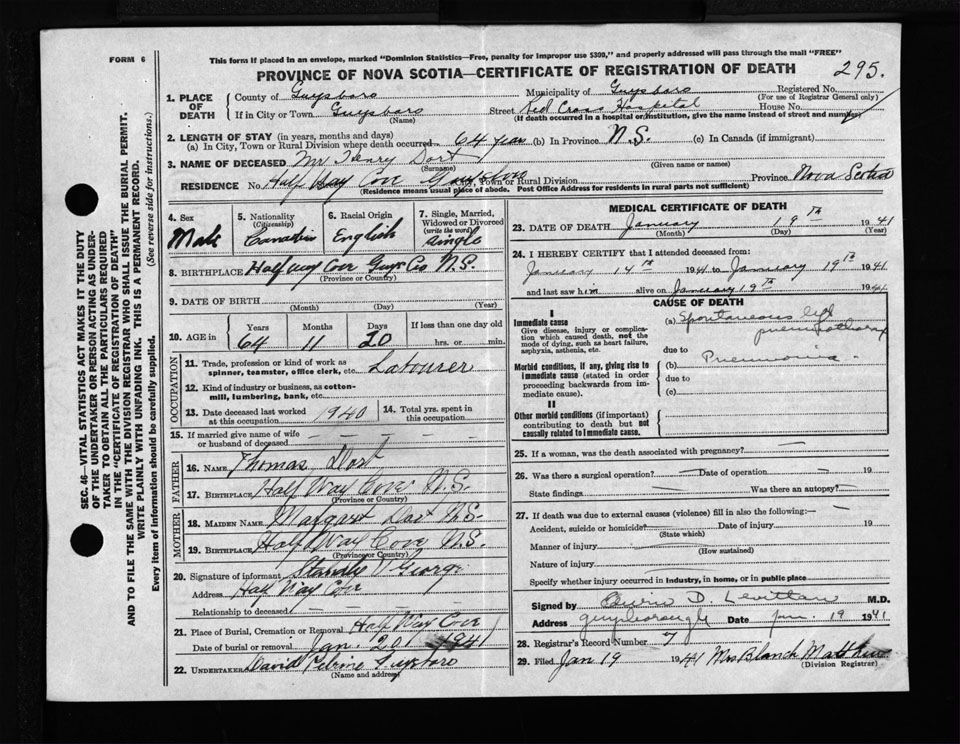 FORM 6
This form if placed in an envelope, marked "Dominion Statistics—Free, penalty for improper use $300," and properly addressed will pass through the mail "FREE"
PROVINCE OF NOVA SCOTIA—CERTIFICATE OF REGISTRATION OF DEATH
295.
1. PLACE OF DEATH
County of Guysboro Municipality of Guysboro Registered No.
(For use of Registrar General only)
If in City or Town Guysboro Street Red Cross Hospital House No.
(Name) (If death occurred in a hospital or institution, give the name instead of street and number)
2. LENGTH OF STAY (in years, months and days)
(a) In City, Town or Rural Division where death occurred 64 years (b) In Province N.S. (c) In Canada (if immigrant)
3. NAME OF DECEASED Mr Henry Dort
(Surname) (Given name or names)
RESIDENCE No. Half Way Cove Guysboro City, Town or Rural Division Province Nova Scotia
(Residence means usual place of abode. Post Office Address for residents in rural parts not sufficient)
4. Sex Male
5. Nationality (Citizenship) Canadian
6. Racial Origin English
7. Single, Married, Widowed or Divorced (write the word) Single
8. BIRTHPLACE Half way Cove Guys Co N.S.
(Province or Country)
9. DATE OF BIRTH
(Month) (Day) (Year)
10. AGE in Years 64 Months 11 Days 20 If less than one day old hrs. or min.
OCCUPATION
11. Trade, profession or kind of work as spinner, teamster, office clerk, etc. Labourer
12. Kind of industry or business, as cotton-mill, lumbering, bank, etc.
13. Date deceased last worked at this occupation 1940
14. Total yrs. spent in this occupation
15. If married give name of wife or husband of deceased
FATHER
16. NAME Thomas Dort
17. BIRTHPLACE Half Way Cove N.S.
(Province or Country)
MOTHER
18. MAIDEN NAME Margaret Dort N.S.
19. BIRTHPLACE Half Way Cove N.S.
(Province or Country)
20. Signature of informant George
Address Half Way Cove
Relationship to deceased
21. Place of Burial, Cremation or Removal Half Way Cove
Date of burial or removal Jan. 20 1941
22. UNDERTAKER David Guysboro
(Name and address)
MEDICAL CERTIFICATE OF DEATH
23. DATE OF DEATH January 19th 1941
(Month) (Day) (Year)
24. I HEREBY CERTIFY that I attended deceased from:
January 14th 1941 to January 19th 1941
and last saw him alive on January 19th 1941
CAUSE OF DEATH
I
Immediate cause
Give disease, injury or complication which caused death, not the mode of dying, such as heart failure, asphyxia, asthenia, etc.
(a) Spontaneous left pneumothorax
due to
Morbid conditions, if any, giving rise to immediate cause (stated in order proceeding backwards from immediate cause).
(b) Pneumonia
due to
(c)
II
Other morbid conditions (if important) contributing to death but not causally related to immediate cause.
25. If a woman, was the death associated with pregnancy?
26. Was there a surgical operation? Date of operation 19
State findings Was there an autopsy?
27. If death was due to external causes (violence) fill in also the following:—
Accident, suicide or homicide? Date of injury 19
(State which)
Manner of injury
(How sustained)
Nature of injury
Specify whether injury occurred in industry, in home, or in public place
Signed by D. Levittan M.D.
Address Guysborough Date Jan. 19 1941
28. Registrar's Record Number 7
29. Filed Jan 19 1941 Mrs Blanch
(Division Registrar)
SEC. 46—VITAL STATISTICS ACT MAKES IT THE DUTY
OF THE UNDERTAKER OR PERSON ACTING AS UNDER-
TAKER TO OBTAIN ALL THE PARTICULARS REQUIRED
IN THE "CERTIFICATE OF REGISTRATION OF DEATH"
AND TO FILE THE SAME WITH THE DIVISION REGISTRAR WHO SHALL ISSUE THE BURIAL PERMIT.
WRITE PLAINLY WITH UNFADING INK. THIS IS A PERMANENT RECORD.
Every item of information should be carefully supplied. (See reverse side for instructions.)